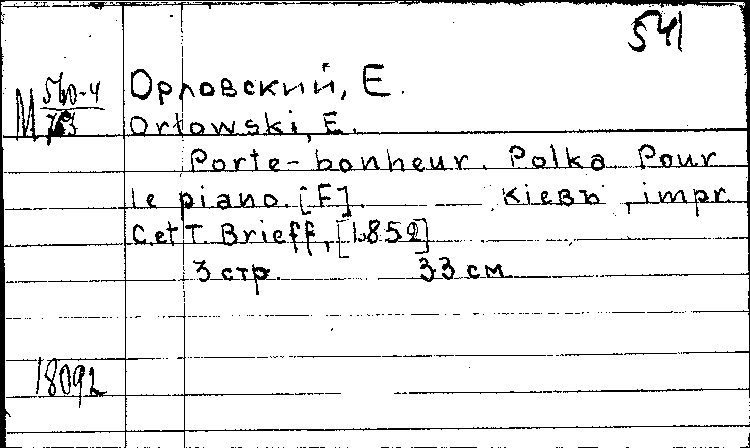 541
М 560-4
Орловский, Е.
Orłowski, E.
Porte-bonheur. Polka pour
le piano. [F]. Кіевъ, impr
C. et T. Brieff, [1852]
3 стр. 33 см
18092